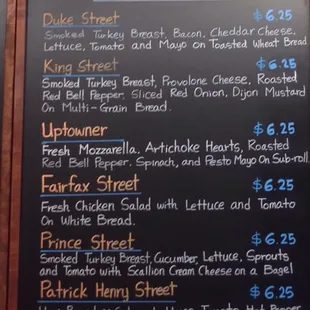 Duke Street $6.25
Smoked Turkey Breast, Bacon, Cheddar Cheese,
Lettuce, Tomato and Mayo on Toasted Wheat Bread
King Street $6.25
Smoked Turkey Breast, Provolone Cheese, Roasted
Red Bell Pepper, Sliced Red Onion, Dijon Mustard
On Multi-Grain Bread.
Uptowner $6.25
Fresh Mozzarella, Artichoke Hearts, Roasted
Red Bell Pepper, Spinach, and Pesto Mayo On Sub-roll.
Fairfax Street $6.25
Fresh Chicken Salad with Lettuce and Tomato
On White Bread.
Prince Street $6.25
Smoked Turkey Breast, Cucumber, Lettuce, Sprouts
and Tomato with Scallion Cream Cheese on a Bagel
Patrick Henry Street $6.25